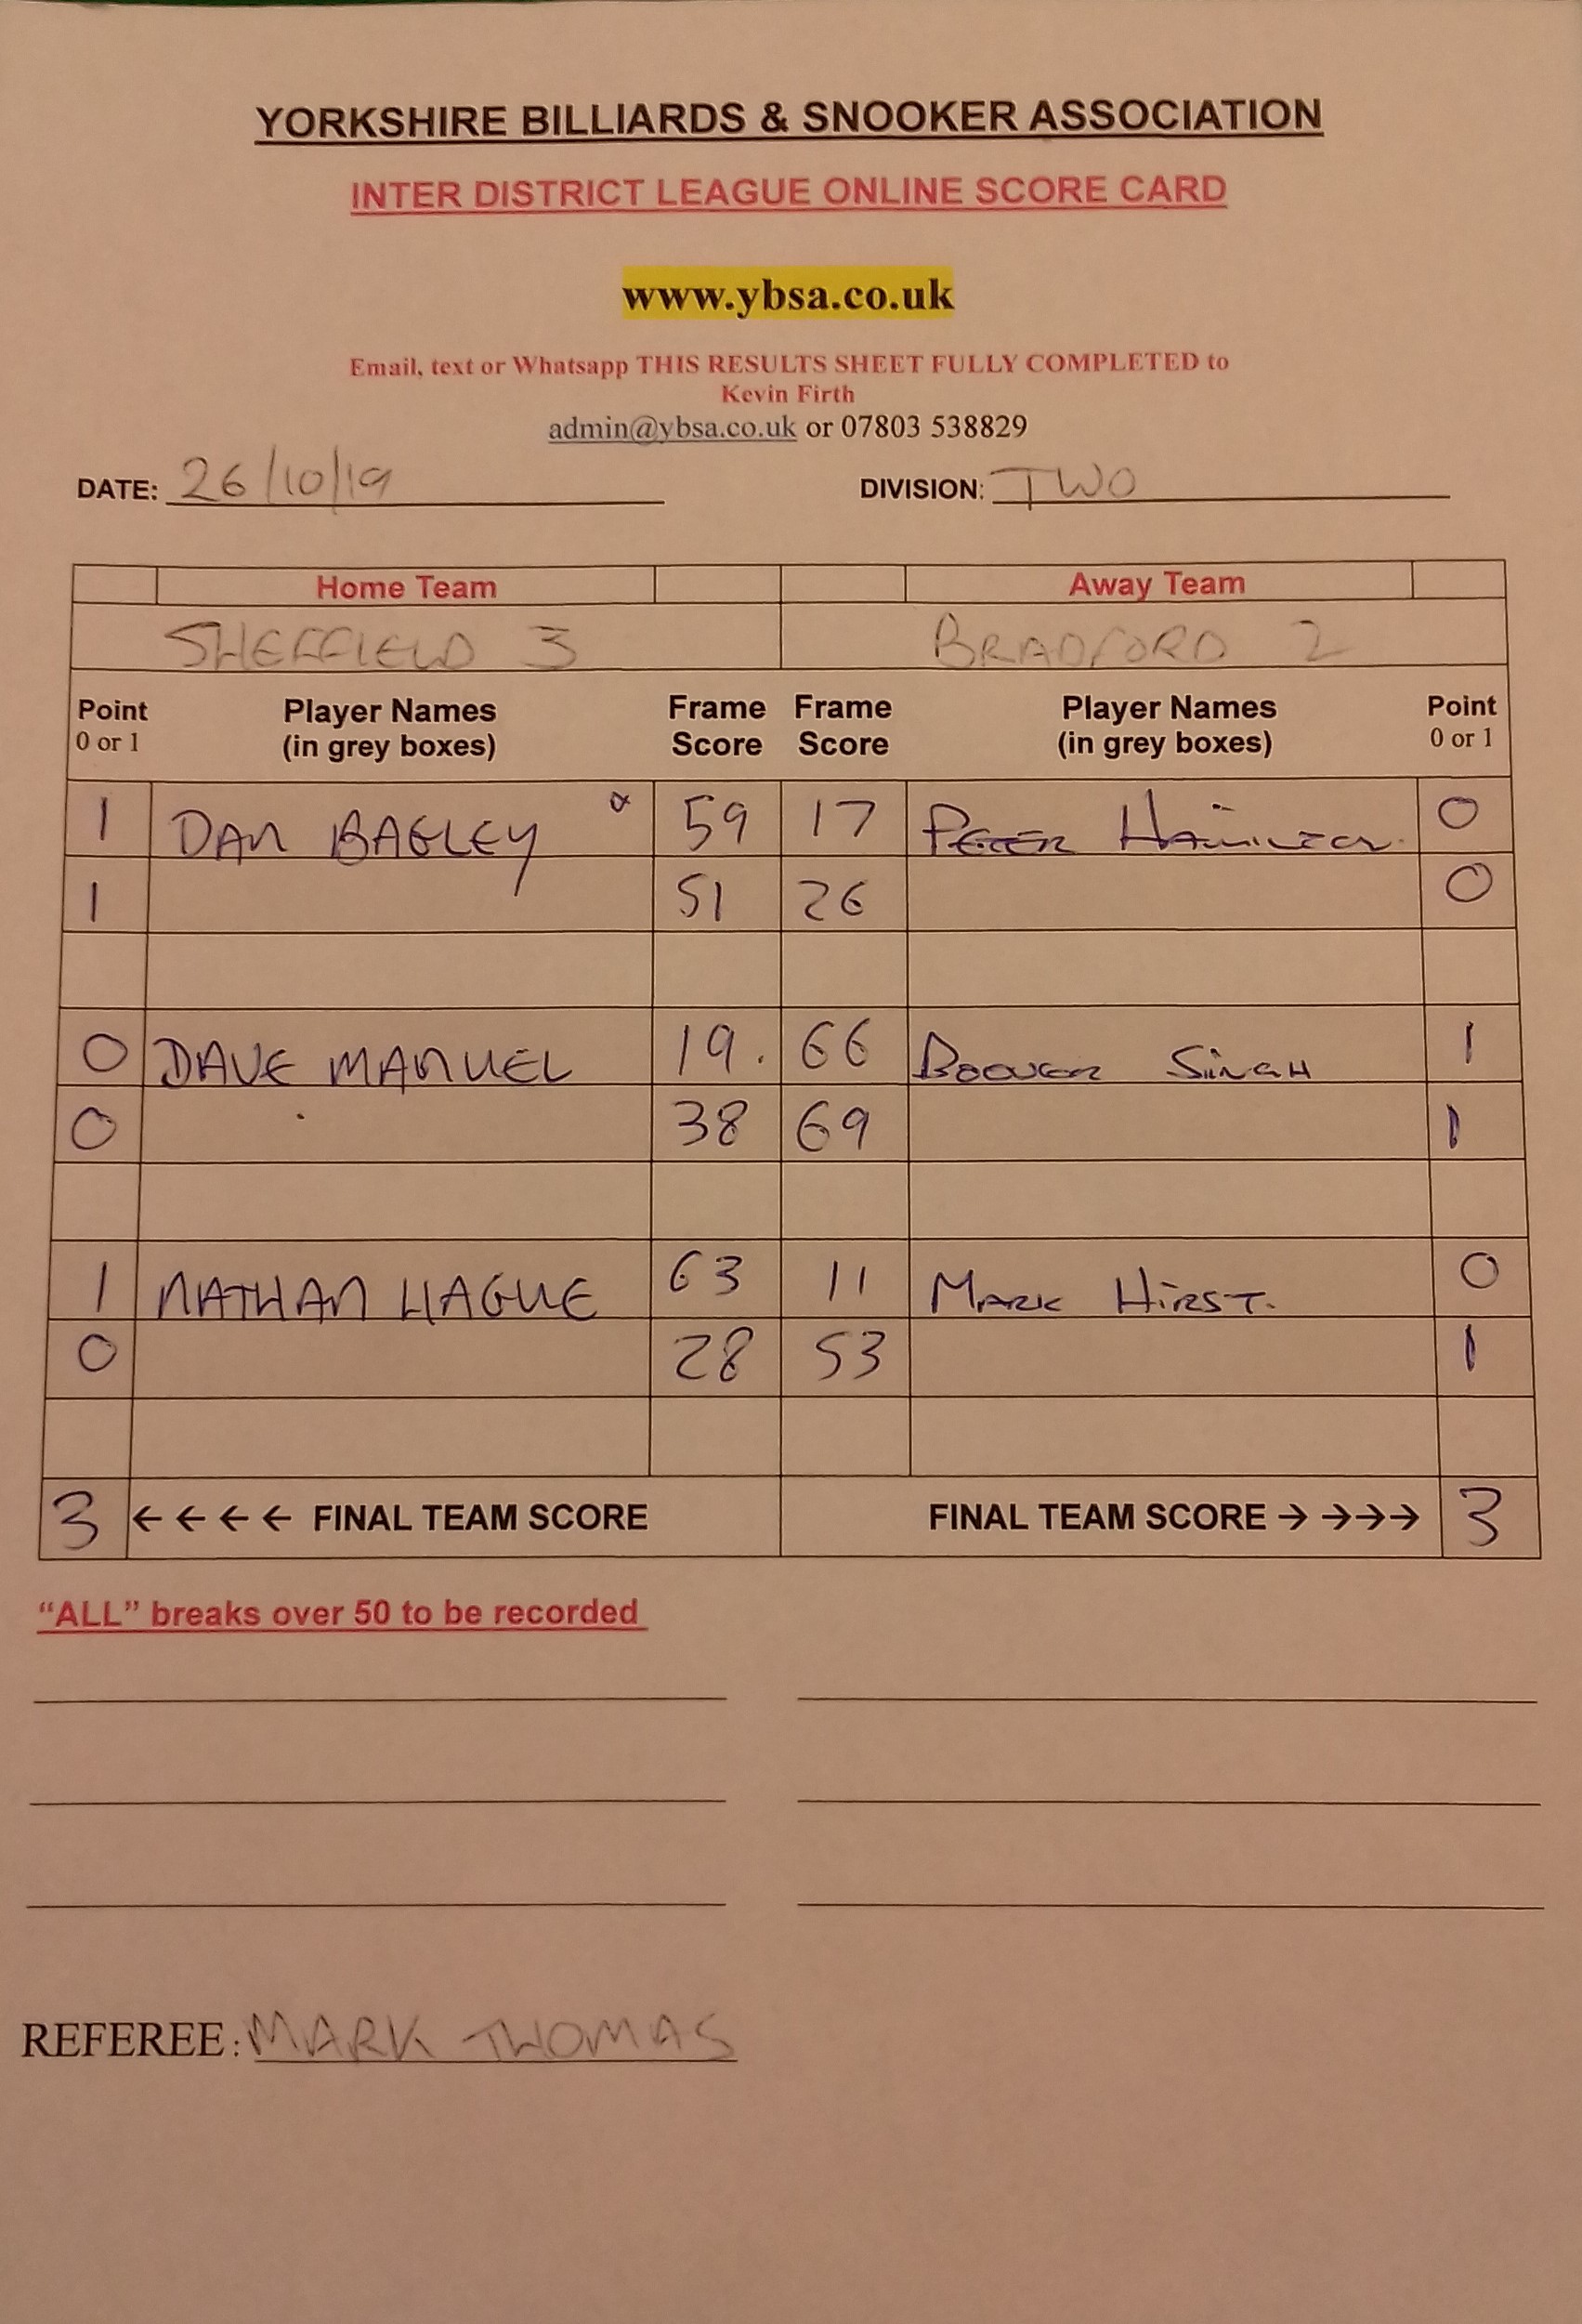 YORKSHIRE BILLIARDS & SNOOKER ASSOCIATION
INTER DISTRICT LEAGUE ONLINE SCORE CARD
www.ybsa.co.uk
Email, text or Whatsapp THIS RESULTS SHEET FULLY COMPLETED to
Kevin Firth
admin@ybsa.co.uk or 07803 538829
DATE: 26/10/19 DIVISION: TWO
Home Team Away Team
SHEFFIELD 3 BRADFORD 2
Point Player Names Frame Frame Player Names Point
0 or 1 (in grey boxes) Score Score (in grey boxes) 0 or 1
1 DAN BAGLEY 59 17 PETER 0
1 51 26 0
0 DAVE MANUEL 19. 66 SINGH 1
0 38 69 1
1 NATHAN HAGUE 63 11 MARK HIRST. 0
0 28 53 1
3 ← ← ← ← FINAL TEAM SCORE FINAL TEAM SCORE → →→→ 3
“ALL” breaks over 50 to be recorded
REFEREE: MARK THOMAS